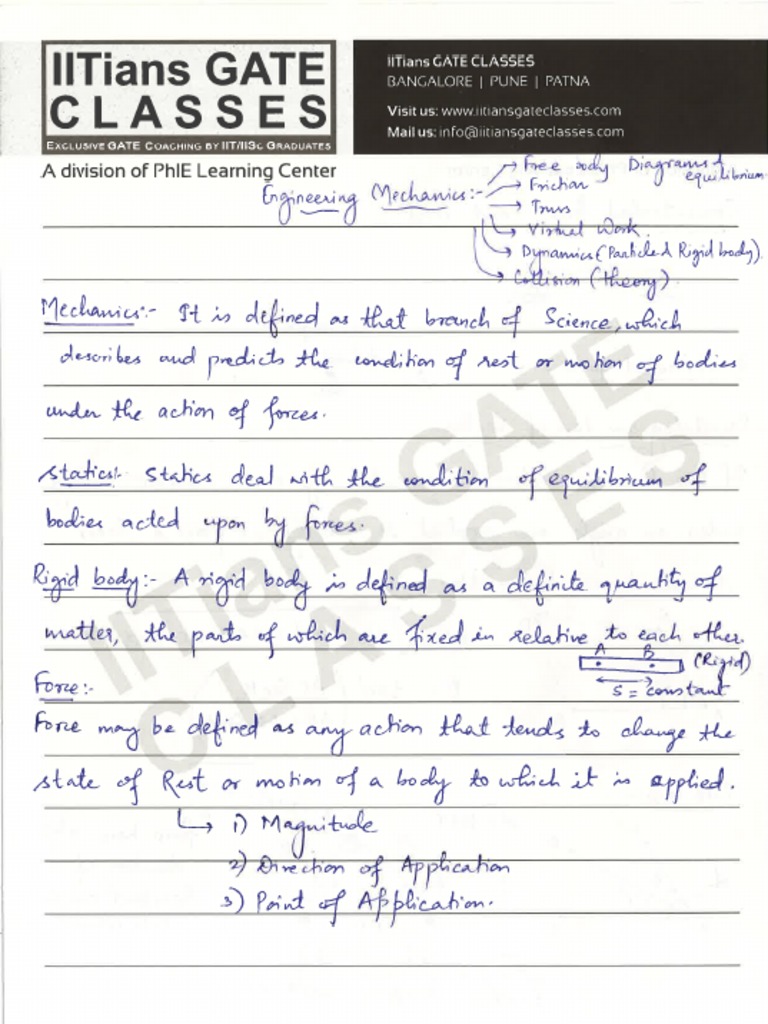 IITians GATE
CLASSES
EXCLUSIVE GATE COACHING BY IIT/IISc GRADUATES
A division of PhIE Learning Center
IITians GATE CLASSES
BANGALORE | PUNE | PATNA
Visit us: www.iitiansgateclasses.com
Mail us: info@iitiansgateclasses.com
Engineering Mechanics:-
Free body Diagrams & equilibrium
Friction
Truss
Virtual Work.
Dynamics (Particle & Rigid body).
Collision (theory)
Mechanics:- It is defined as that branch of Science, which
describes and predicts the condition of rest or motion of bodies
under the action of forces.
Statics:- Statics deal with the condition of equilibrium of
bodies acted upon by forces.
Rigid body:- A rigid body is defined as a definite quantity of
matter, the parts of which are fixed in relative to each other.
A B (Rigid)
S = constant
Force:-
Force may be defined as any action that tends to change the
state of Rest or motion of a body to which it is applied.
1) Magnitude
2) Direction of Application
3) Point of Application.
IITians GATE
CLASSES